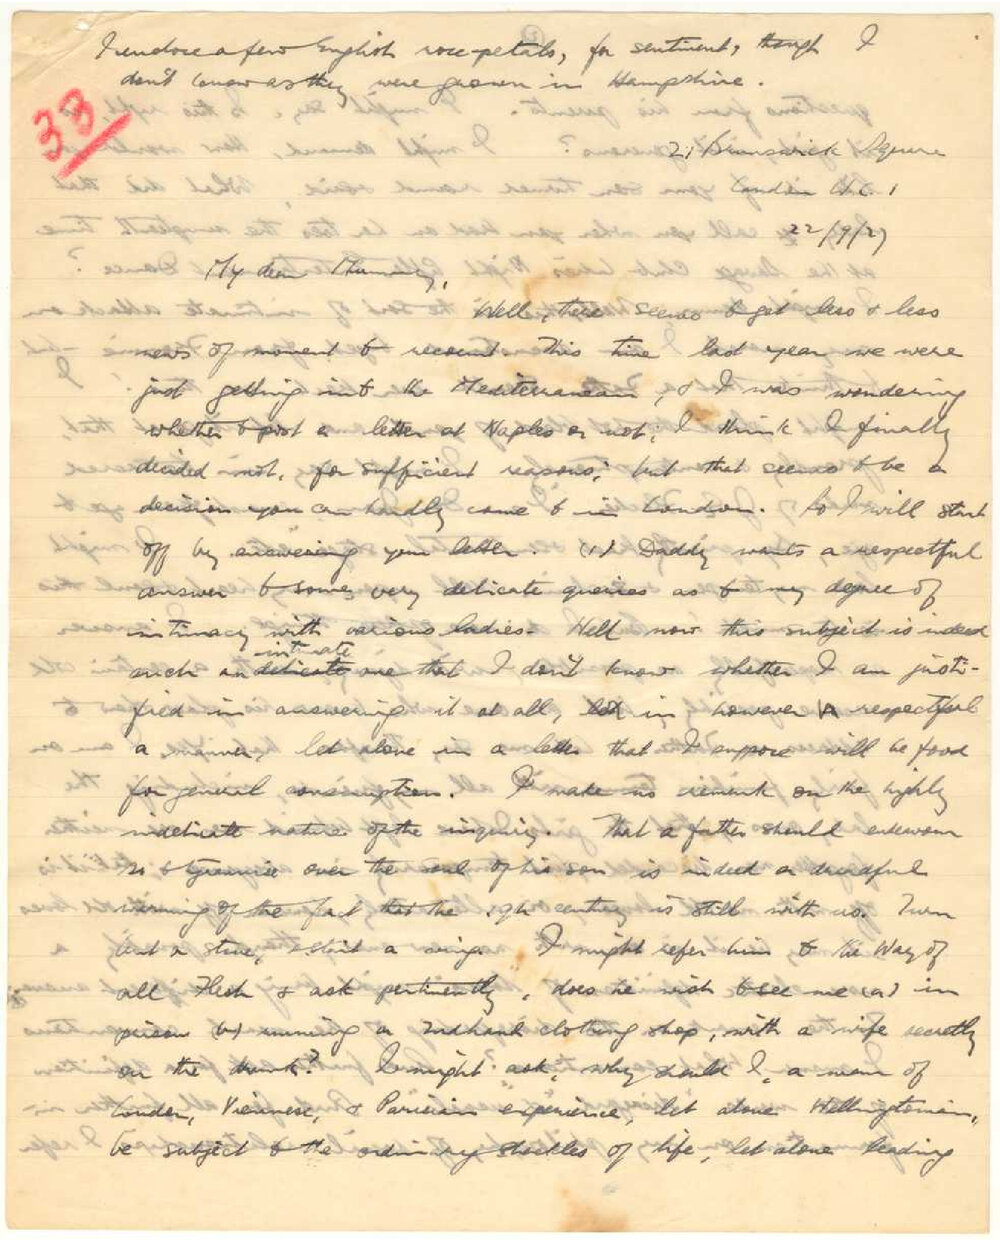 I enclose a few English rose-petals, for sentiment, though I
don't know as they were grown in Hampshire.
33
21 Brunswick Square
London W.C.1
22/9/27
My dear Mummy,
Well, there seems to get less & less
news of moment to recount. This time last year we were
just getting into the Mediterranean, & I was wondering
whether to post a letter at Naples or not; I think I finally
decided not, for sufficient reasons; but that seems to be a
decision you can hardly come to in London. So I will start
off by answering your letter. (1) Daddy wants a respectful
answer to some very delicate queries as to my degree of
intimacy with various ladies. Well now this subject is indeed
such an delicate intimate one that I don't know whether I am justi-
fied in answering it at all, in however respectful
a manner, let alone in a letter that I suppose will be food
for general consumption. I make no remark on the highly
indelicate nature of the inquiry. That a father should endeavour
so to tyrannise over the soul of his son is indeed a dreadful
warning of the fact that the 19th century is still with us. Turn
but a stone, & start a wing. I might refer him to the Way of
all Flesh & ask pertinently, does he wish to see me (a) in
prison (b) running a 2ndhand clothing shop, with a wife secretly
on the drunk? I might ask, why should I, a man of
London, Viennese, & Parisian experience, let alone Wellingtonian,
be subject to the ordinary shackles of life, let alone leading